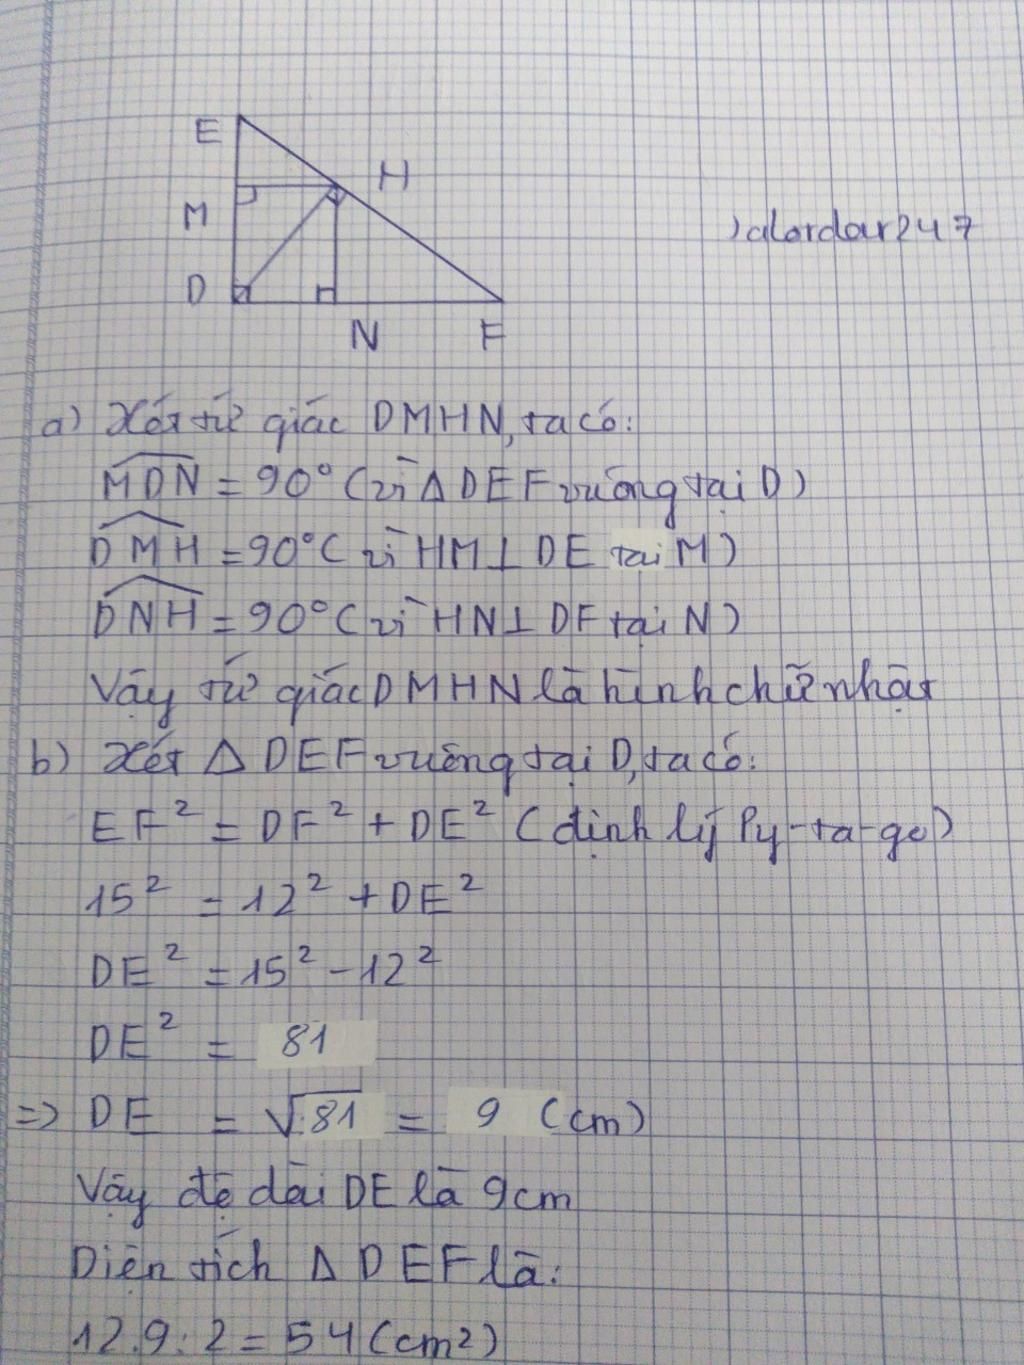 E
H
M
)alordar247
D
N
F
a) Xét tứ giác DMHN, ta có:
MDN = 90° (vì Δ DEF vuông tại D)
DMH = 90° (vì HM⊥ DE tại M)
DNH = 90° (vì HN⊥ DF tại N)
Vậy tứ giác DMHN là hình chữ nhật
b) Xét Δ DEF vuông tại D, ta có:
EF² = DF² + DE² (định lý Py-ta-go)
15² = 12² + DE²
DE² = 15² - 12²
DE² = 81
=> DE = √81 = 9 (cm)
Vậy độ dài DE là 9cm
Diện tích Δ DEF là:
12.9:2 = 54 (cm2)